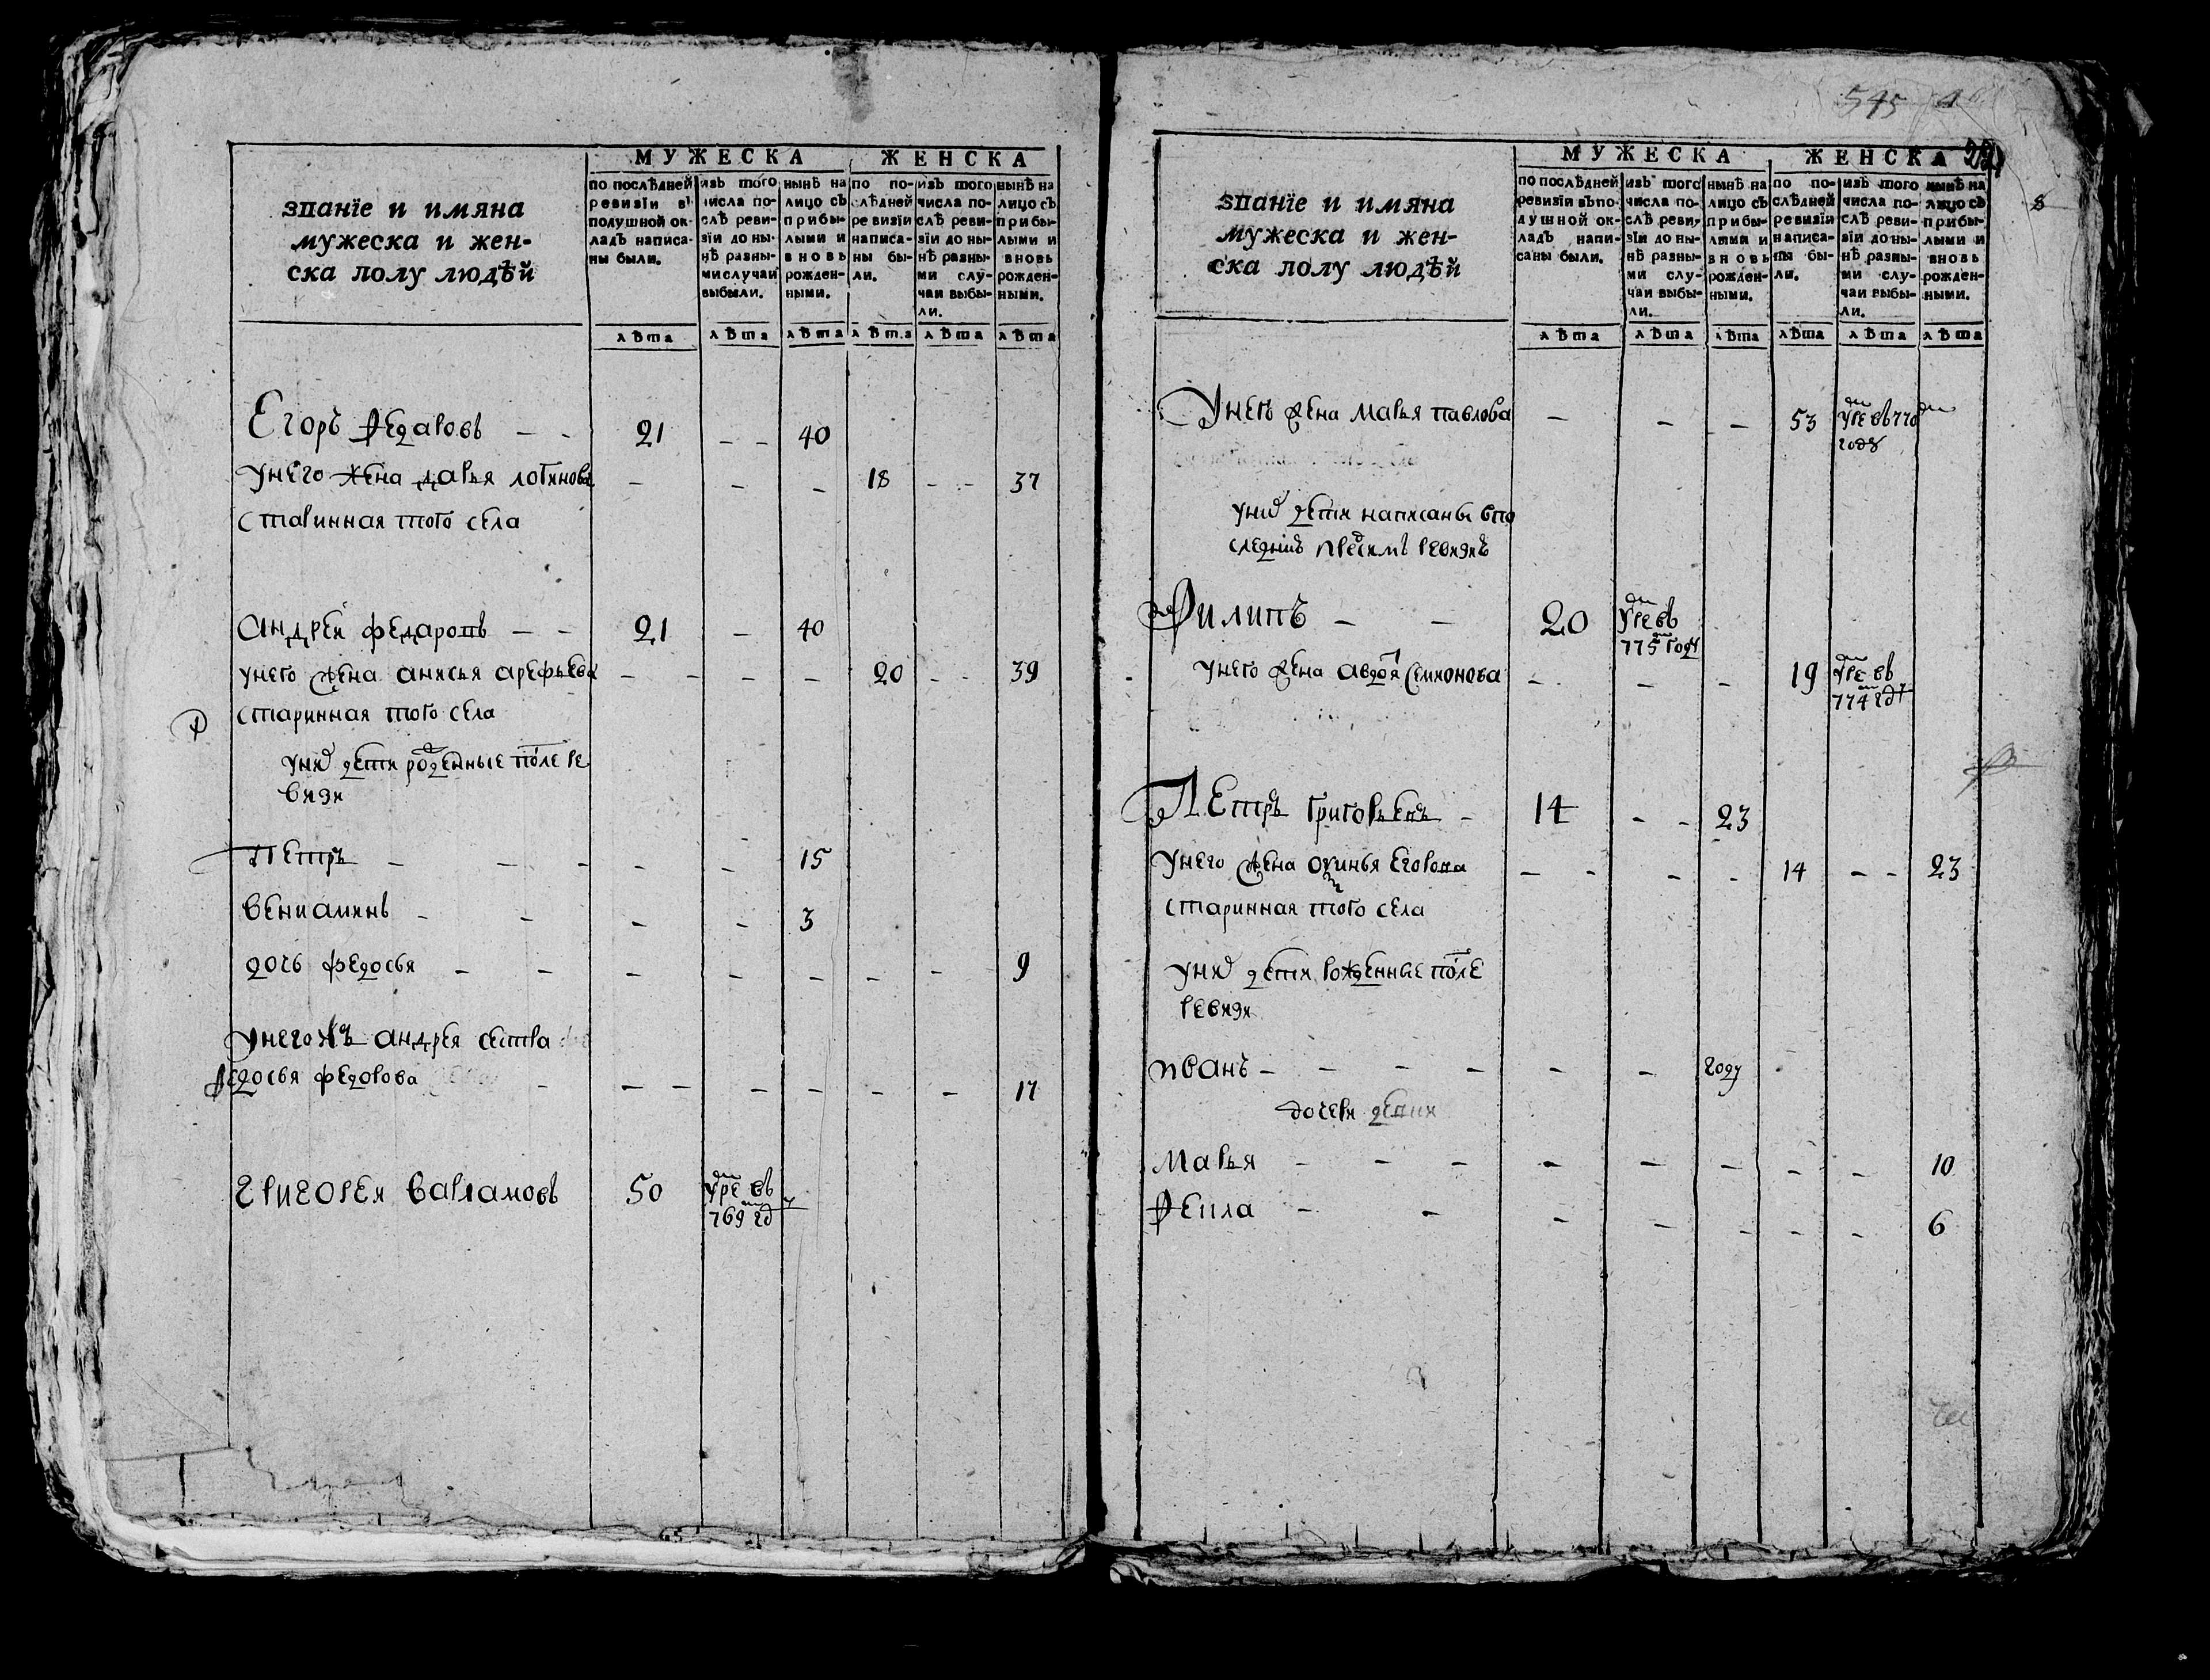 МУЖЕСКА ЖЕНСКА
званїе и имяна
мужеска и жен-
ска полу людѣй
по послѣдней
ревизїи в
подушной ок-
ладъ написа-
ны были.
изъ того
числа по-
слѣ реви-
зїи до ны-
нѣ разны-
ми случаи
выбыли.
нынѣ на
лицо съ
прибы-
лыми и
вновь
рожден-
ными.
по по-
слѣдней
ревизїи
написа-
ны бы-
ли.
изъ того
числа по-
слѣ реви-
зїи до ны-
нѣ разны-
ми слу-
чаи выбы-
ли.
нынѣ на
лицо съ
прибы-
лыми и
вновь
рожден-
ными.
лѣта лѣта лѣта лѣта лѣта лѣта
Егоръ Федаровъ – – 21 – – 40
унего жена дарья логинова – – – 18 – – 37
старинная того села
Андрей федаровъ – – 21 – 40
унего жена анисья арефьева – – – – 20 – – 39
старинная того села
уних дети рожденные после ре
визи
Петръ – – – – – 15
Вениаминъ – – – – 3
дочь федосья – – – – – – – 9
унегожъ андрея сестра
Федосья федорова – – – – – – – 17
Григорей варламовъ 50 умре въ
769 году
545
МУЖЕСКА ЖЕНСКА
8
званїе и имяна
мужеска и жен-
ска полу людѣй
по послѣдней
ревизїи въ по-
душной ок-
ладъ напи-
саны были.
изъ того
числа по-
слѣ реви-
зїи до ны-
нѣ разны-
ми слу-
чаи выбы-
ли.
нынѣ на
лицо съ
прибы-
лыми и
вновь
рожден-
ными.
по по-
слѣдней
ревизїи
написа-
ны бы-
ли.
изъ того
числа по-
слѣ реви-
зїи до ны-
нѣ разны-
ми слу-
чаи выбы-
ли.
нынѣ на
лицо съ
прибы-
лыми и
вновь
рожден-
ными.
лѣта лѣта лѣта лѣта лѣта лѣта
Унего жена марья павлова – – – 53 умре въ 770
году
уних дети написаны впо
следней пред симъ ревизиъ
Филипъ – – 20 умре въ
775 году
унего жена авдотя Семионова – – – 19 умре въ
774 году
Петръ григорьевъ – 14 – – 23
унего жена Егорова – – – – 14 – – 23
старинная того села
уних дети рожденные после
ревизи
иванъ – – – – – – году
дочери дети
Марья – – – – – – – – 10
Фекла – – – – – – – 6